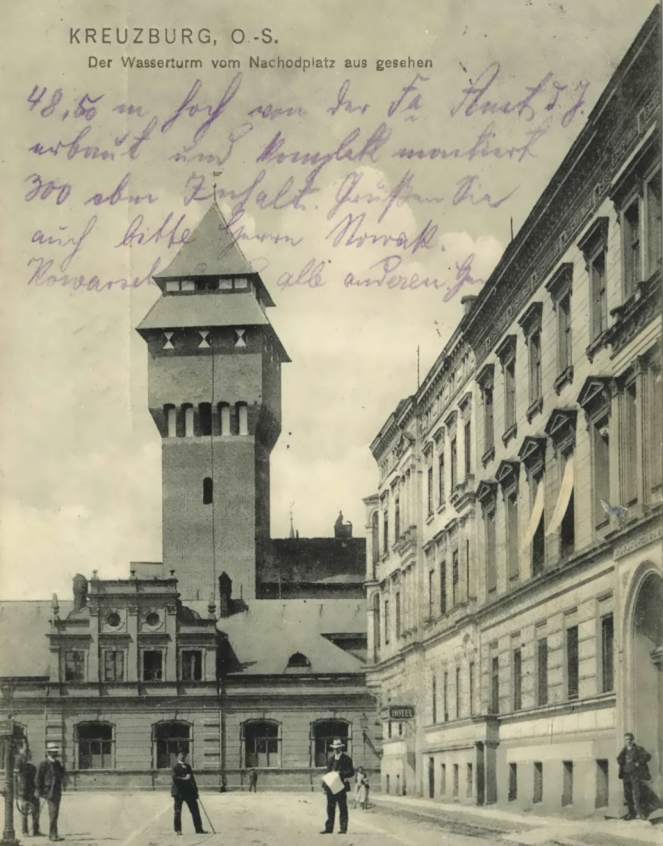 KREUZBURG, O.-S.
Der Wasserturm vom Nachodplatz aus gesehen
48,50 m hoch von der Fa
erbaut und komplett montiert
300 cbm Inhalt. Grüßen Sie
auch bitte Herrn Nowak.
alle anderen
HOTEL